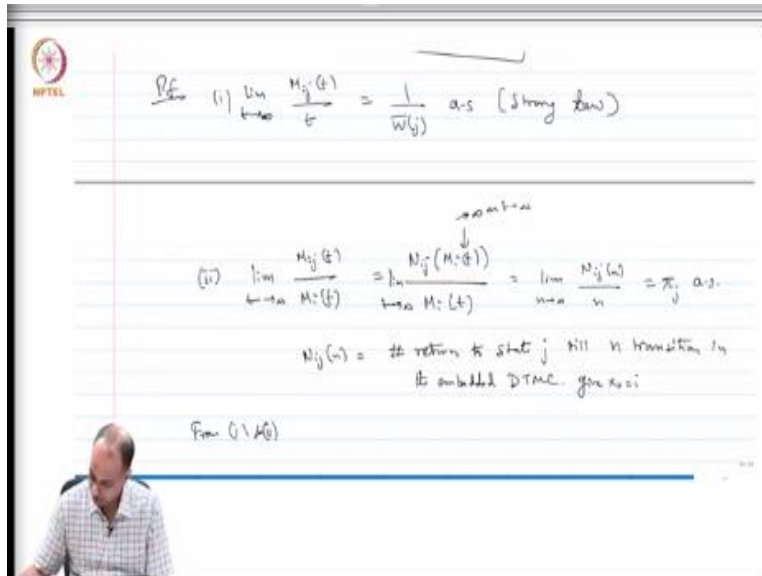 NPTEL
Pf (i) lim t→∞ Mij(t) / t = 1 / W̄(j) a.s (Strong Law)
→∞ as t→∞
(ii) lim t→∞ Mij(t) / Mi(t) = lim t→∞ Nij(Mi(t)) / Mi(t) = lim n→∞ Nij(n) / n = πj a.s.
Nij(n) = # return to stat j till n transition in
embedded DTMC. give x0=i
From (i) &(ii)